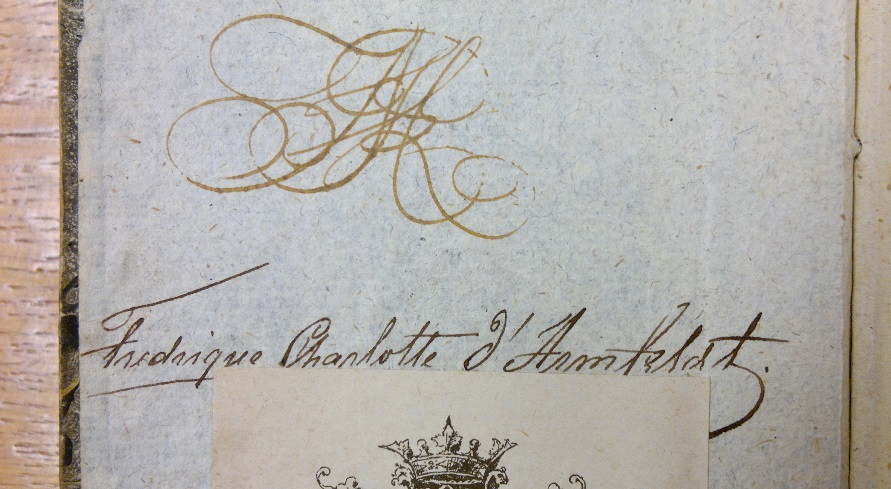 Fredrique Charlotte d'Armfeldt.